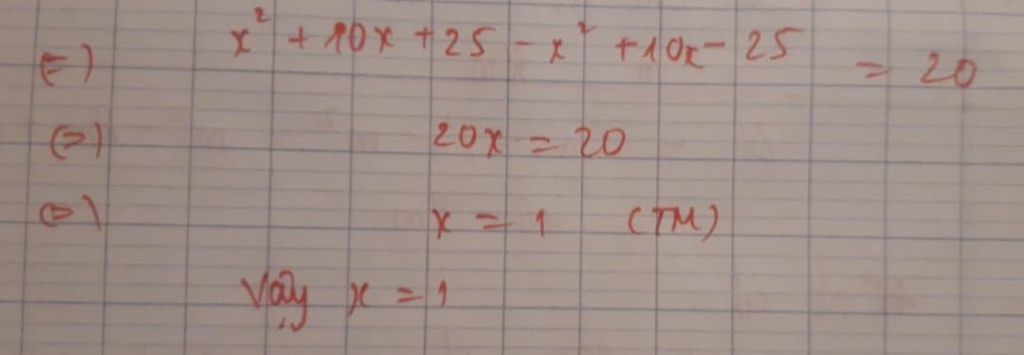 ⇔) x² + 10x + 25 - x² + 10x - 25 = 20
⇔) 20x = 20
⇔) x = 1 (TM)
Vậy x = 1